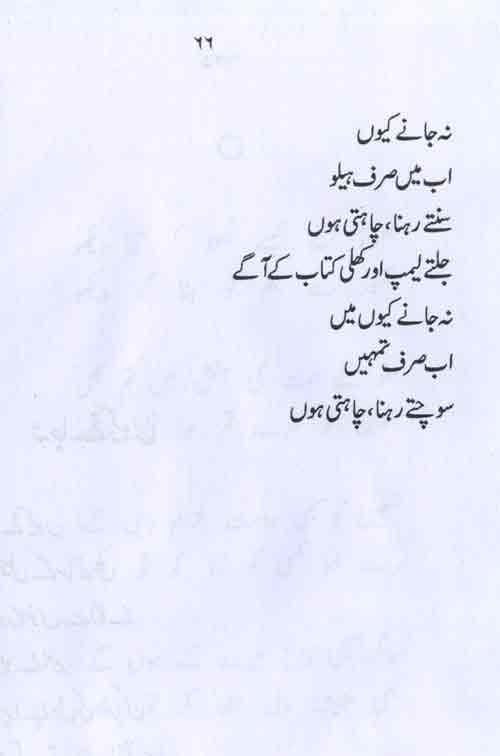 ۶۶
نہ جانے کیوں
اب میں صرف ہیلو
سنتے رہنا، چاہتی ہوں
جلتے لیمپ اور کھلی کتاب کے آگے
نہ جانے کیوں میں
اب صرف تمہیں
سوچتے رہنا، چاہتی ہوں